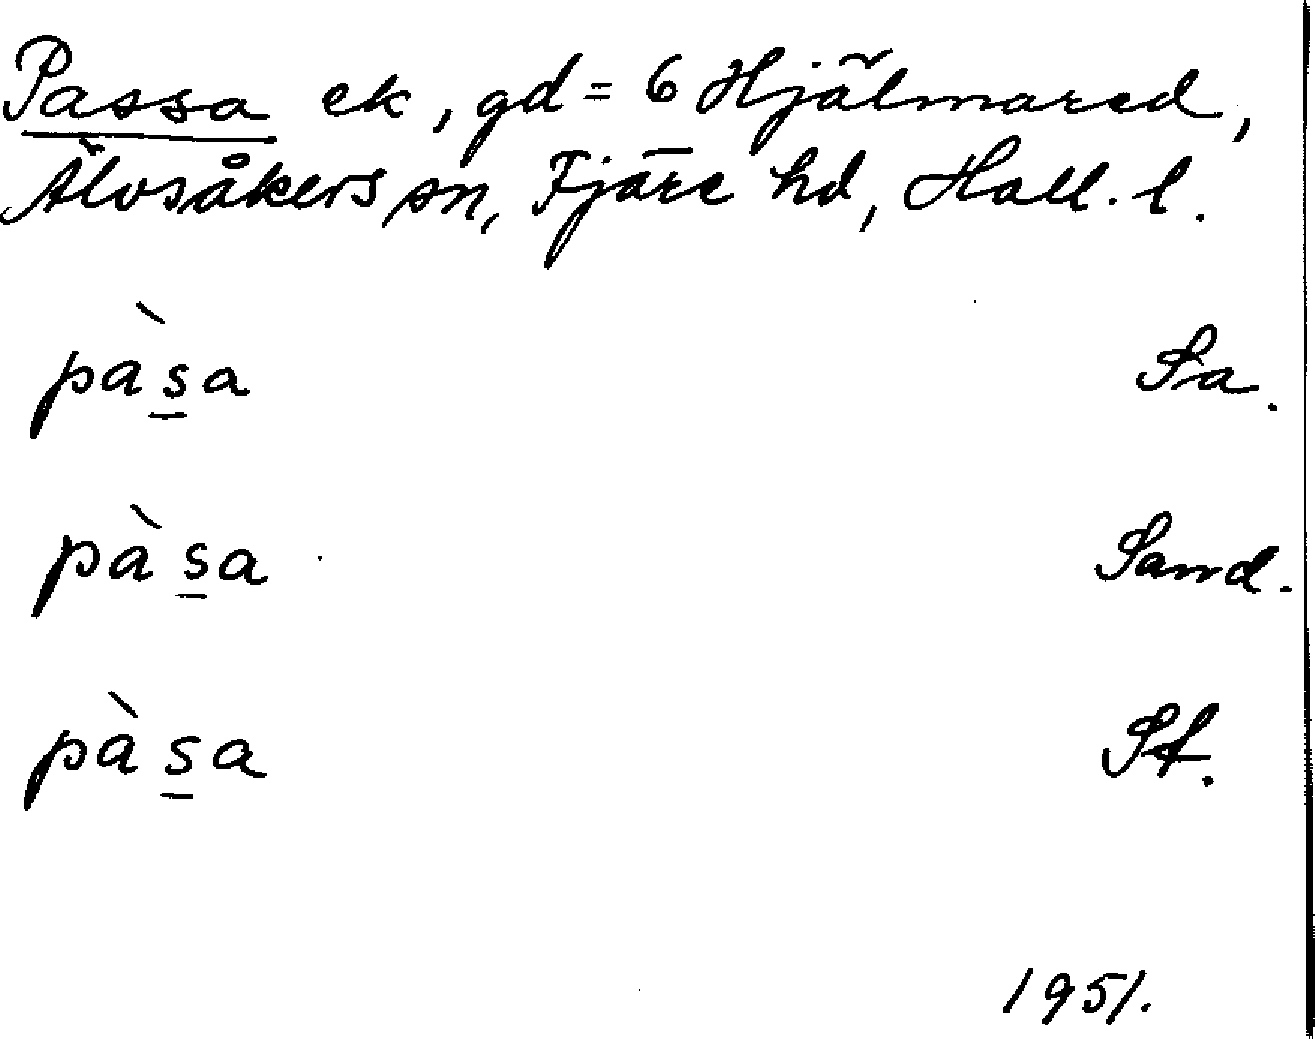 Passa ek, gd = 6 Hjälmared,
Älvsåkers sn, Fjäre hd, Hall. l.
pàs̲a Sa.
pàs̲a Sand.
pàs̲a Sf.
1951.